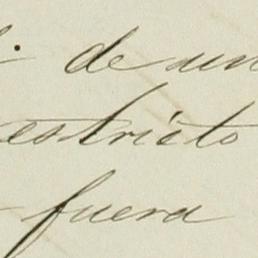 de un
estricto
fuera